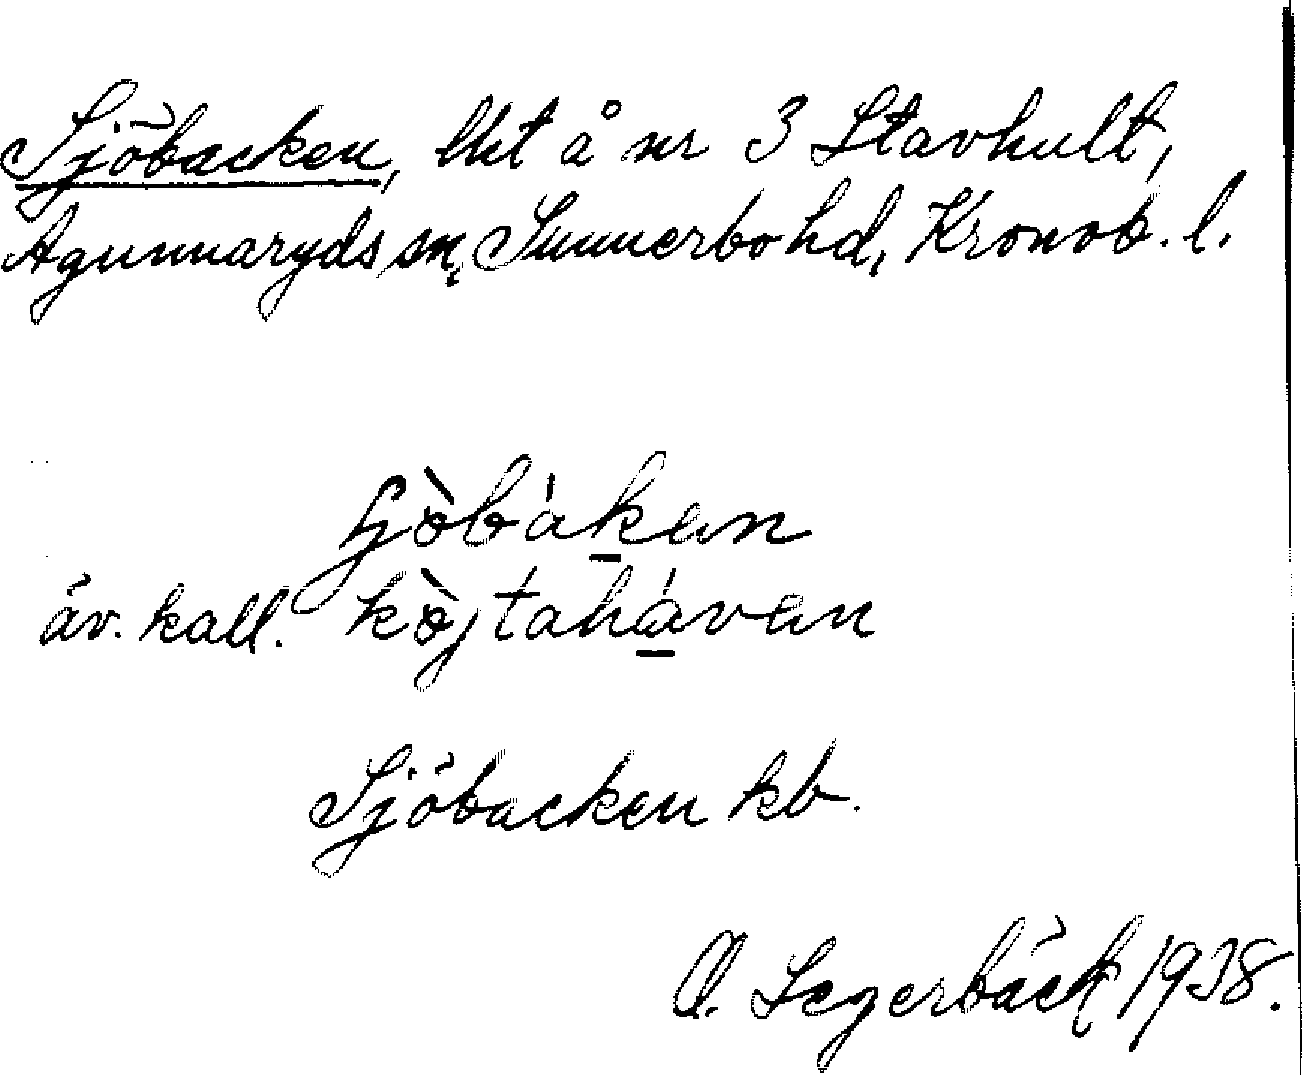 Sjöbacken, lht å nr 3 Stavhult,
Agunnaryds sn, Sunnerbo hd, Kronob. l.
ʃö̀bákan
äv. kall. kö̀jtahávan
Sjöbacken kb.
O. Segerbäck 1938.